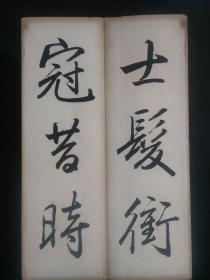 士髮衝
冠昔時